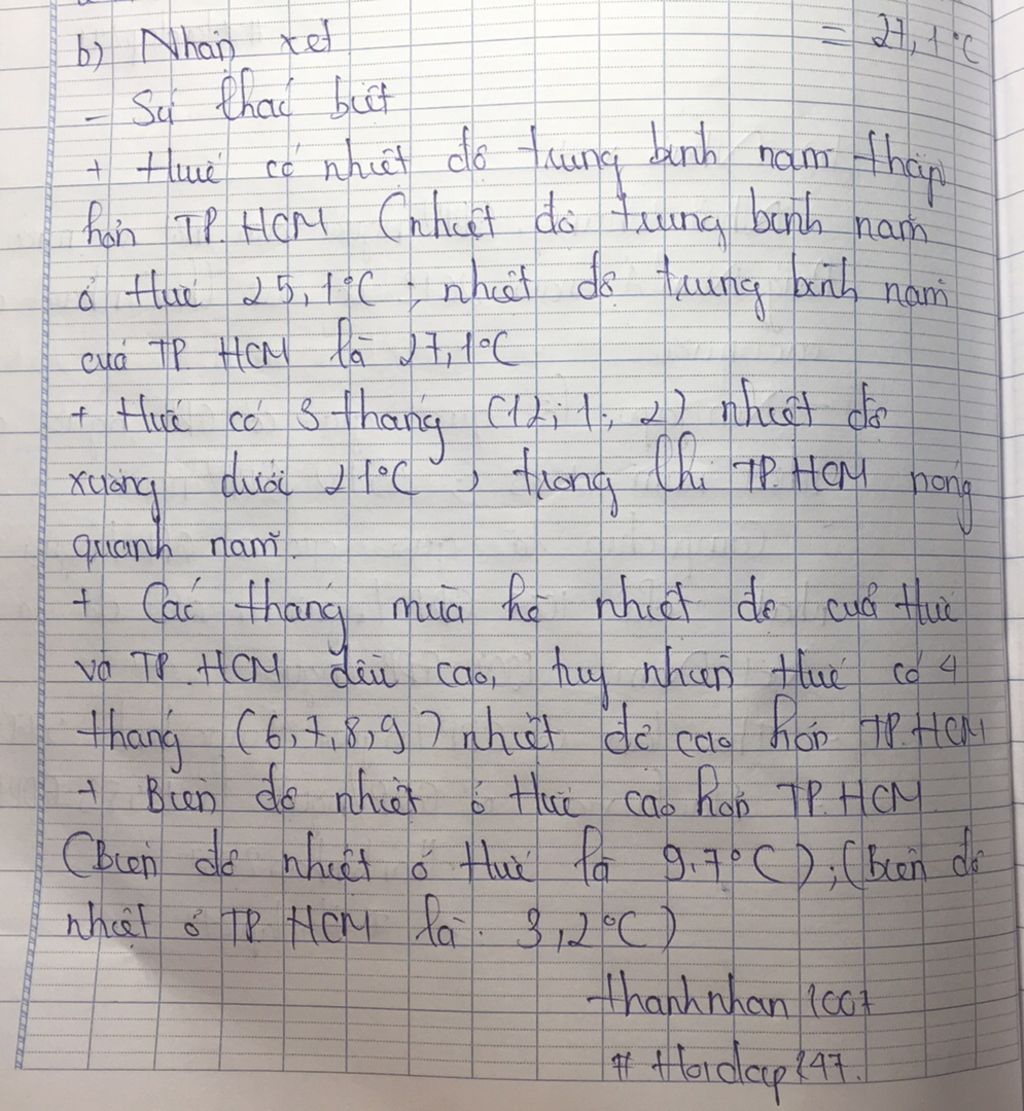 = 27,1°C
b) Nhận xét
- Sự khác biệt
+ Huế có nhiệt độ trung bình năm thấp
hơn TP. HCM (nhiệt độ trung bình năm
ở Huế 25,1°C ; nhiệt độ trung bình năm
của TP. HCM là 27,1°C
+ Huế có 3 tháng (12; 1; 2) nhiệt độ
xuống dưới 21°C , trong khi TP. HCM nóng
quanh năm.
+ Các tháng mùa hè nhiệt độ của Huế
và TP. HCM đều cao, tuy nhiên Huế có 4
tháng (6,7,8,9) nhiệt độ cao hơn TP. HCM
+ Biên độ nhiệt ở Huế cao hơn TP. HCM
(Biên độ nhiệt ở Huế là 9.7°C);(Biên độ
nhiệt ở TP. HCM là. 3,2°C)
thanhnhan 1007
# Hoidap 247.